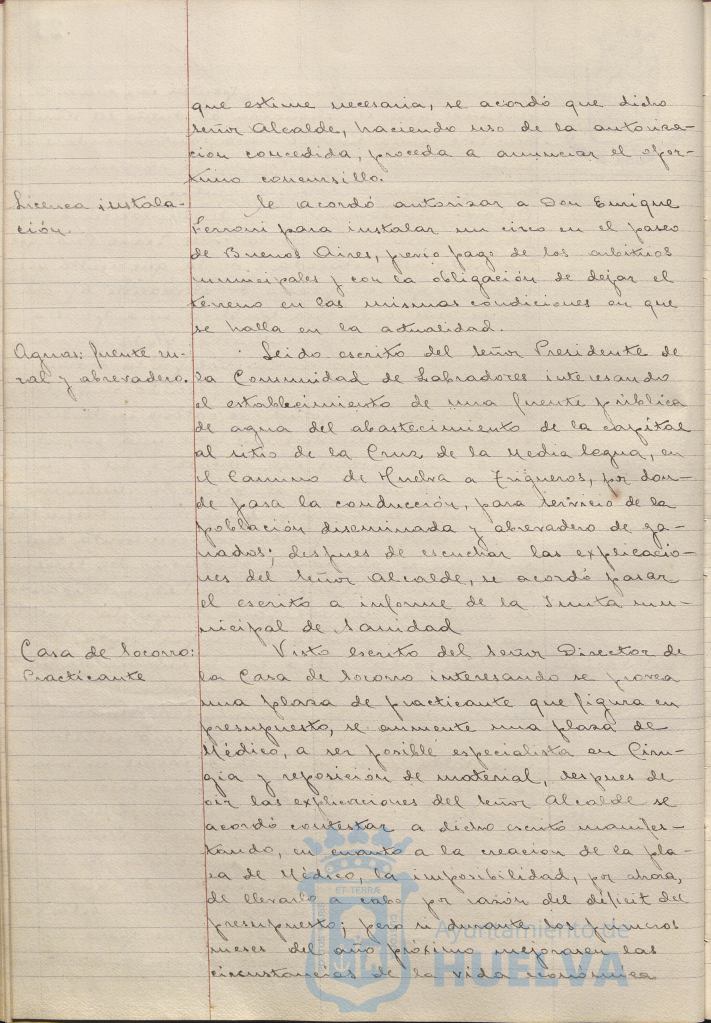 que estime necesaria, se acordó que dicho
señor Alcalde, haciendo uso de la autoriza-
ción concedida, proceda a anunciar el opor-
tuno concursillo.
Licencia instala-
ción.
Se acordó autorizar a Don Enrique
Ferroni para instalar un circo en el paseo
de Buenos Aires, previo pago de los arbitrios
municipales y con la obligación de dejar el
terreno en las mismas condiciones en que
se halla en la actualidad.
Aguas: fuente ru-
ral y abrevadero.
Leido escrito del Señor Presidente de
la Comunidad de Labradores interesando
el establecimiento de una fuente pública
de agua del abastecimiento de la capital
al sitio de la Cruz de la Media legua, en
el Camino de Huelva a Trigueros, por don-
de pasa la conducción, para servicio de la
población diseminada y abrevadero de ga-
nados; despues de escuchar las explicacio-
nes del Señor Alcalde, se acordó pasar
el escrito a informe de la Junta mu-
nicipal de Sanidad
Casa de Socorro:
Practicante
Visto escrito del Señor Director de
la Casa de Socorro interesando se provea
una plaza de practicante que figura en
presupuesto, se aumente una plaza de
Médico, a ser posible especialista en Ciru-
gia y reposición de material, despues de
oir las explicaciones del Señor Alcalde se
acordó contestar a dicho escrito manifes-
tando, en cuanto a la creación de la pla-
za de Médico, la imposibilidad, por ahora,
de llevarlo a cabo por razón del déficit del
presupuesto; pero si durante los primeros
meses del año próximo mejorasen las
circustancias de la vida económica
ET TERRÆ
Ayuntamiento de
HUELVA